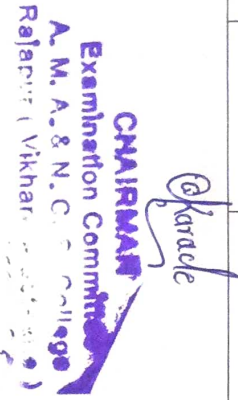 @Karade
CHAIRMAN
Examination Committ
A. M. A. & N. C. College
Rajapur (Vikhar